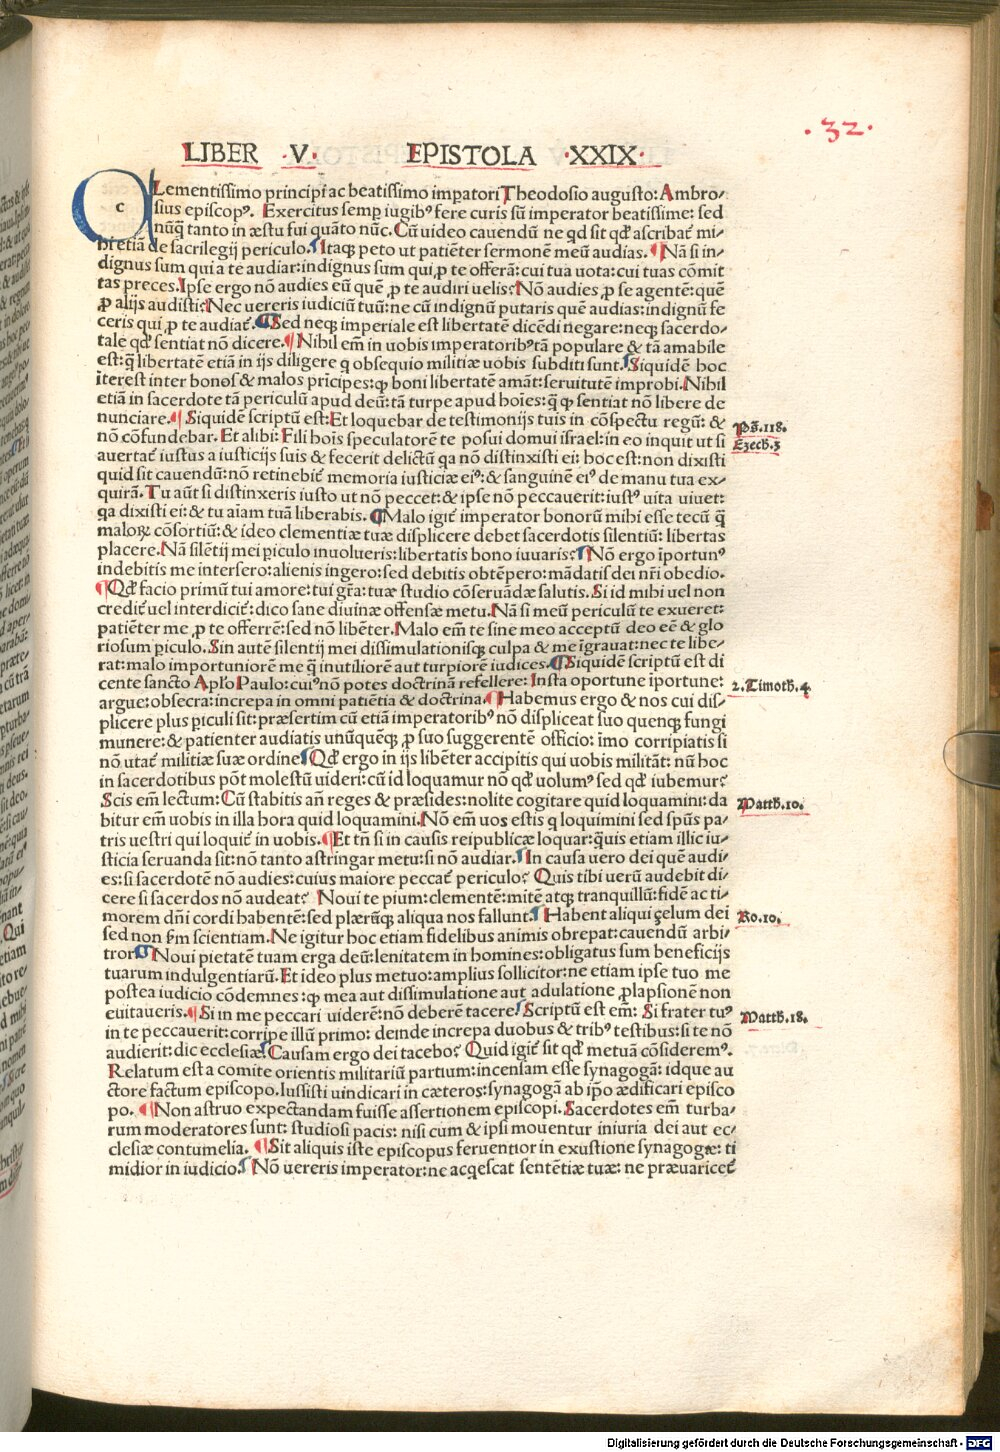 .32.
LIBER .V. EPISTOLA .XXIX.
CLementissimo principi ac beatissimo impatori Theodosio augusto: Ambro-
sius episcopꝰ. Exercitus semp iugibꝰ fere curis sũ imperator beatissime: sed
nũq̃ tanto in æstu fui quãto nũc. Cũ video cauendũ ne qd sit qđ ascribat̃ mi-
hi etiã de sacrilegij periculo. Itaqꝫ peto ut patiẽter sermonẽ meũ audias. Nã si in-
dignus sum qui a te audiar: indignus sum qui ꝓ te offerã: cui tua uota: cui tuas cõmit
tas preces. Ipse ergo nõ audies eũ quẽ ꝓ te audiri uelis? Nõ audies ꝓ se agentẽ: quẽ
ꝓ alijs audisti? Nec uereris iudiciũ tuũ: ne cũ indignũ putaris quẽ audias: indignũ fe
ceris qui ꝓ te audiat̃. Sed neqꝫ imperiale est libertatẽ dicẽdi negare: neqꝫ sacerdo-
tale qđ sentiat nõ dicere. Nihil em̃ in uobis imperatoribꝰ tã populare & tã amabile
est: q̃ libertatẽ etiã in ijs diligere q obsequio militiæ uobis subditi sunt. Siquidẽ hoc
iterest inter bonos & malos prĩcipes: ꝙ boni libertatẽ amãt: seruitutẽ improbi. Nihil
etiã in sacerdote tã periculũ apud deũ: tã turpe apud hoĩes: q̃ ꝙ sentiat nõ libere de
nunciare. Siquidẽ scriptũ est: Et loquebar de testimonijs tuis in cõspectu regũ: &
nõ cõfundebar. Et alibi: Fili hoĩs speculatorẽ te posui domui israel: in eo inquit ut si
auertat̃ iustus a iusticijs suis & fecerit delictũ qa nõ distinxisti ei: hoc est: non dixisti
quid sit cauendũ: nõ retinebit̃ memoria iusticiæ eiꝰ: & sanguinẽ eiꝰ de manu tua ex-
quirã. Tu aũt si distinxeris iusto ut nõ peccet: & ipse nõ peccauerit: iustꝰ uita uiuet:
qa dixisti ei: & tu aĩam tuã liberabis. Malo igit̃ imperator bonorũ mihi esse tecũ q̃
maloꝝ cõsortiũ: & ideo clementiæ tuæ displicere debet sacerdotis silentiũ: libertas
placere. Nã silẽtij mei piculo inuolueris: libertatis bono iuuaris? Nõ ergo ĩportunꝰ
indebitis me intersero: alienis ingero: sed debitis obtẽpero: mãdatis dei nr̃i obedio.
Qđ facio primũ tui amore: tui gr̃a: tuæ studio cõseruãdæ salutis. Si id mihi uel non
credit̃ uel interdicit̃: dico sane diuinæ offensæ metu. Nã si meũ periculũ te exueret:
patiẽter me ꝓ te offerrẽ: sed nõ libẽter. Malo em̃ te sine meo acceptũ deo eẽ & glo
riosum piculo. Sin autẽ silentij mei dissimulationisqꝫ culpa & me ĩgrauat: nec te libe-
rat: malo importuniorẽ me q̃ inutiliorẽ aut turpiorẽ iudices. Siquidẽ scriptũ est di
cente sancto Apl̃o Paulo: cuiꝰ nõ potes doctrinã refellere: Insta oportune ĩportune:
argue: obsecra: increpa in omni patiẽtia & doctrina. Habemus ergo & nos cui dis-
plicere plus piculi sit: præsertim cũ etiã imperatoribꝰ nõ displiceat suo quenqꝫ fungi
munere: & patienter audiatis unũquẽqꝫ ꝓ suo suggerentẽ officio: ĩmo corripiatis si
nõ utat̃ militiæ suæ ordine. Qđ ergo in ijs libẽter accipitis qui uobis militãt: nũ hoc
in sacerdotibus põt molestũ uideri: cũ id loquamur nõ qđ uolumꝰ sed qđ iubemur?
Scis em̃ lectum: Cũ stabitis añ reges & præsides: nolite cogitare quid loquamini: da
bitur em̃ uobis in illa hora quid loquamini. Nõ em̃ uos estis q loquimini sed spũs pa-
tris uestri qui loquit̃ in uobis. Et tñ si in causis reipublicæ loquar: q̃uis etiam illic iu-
sticia seruanda sit: nõ tanto astringar metu: si nõ audiar. In causa uero dei quẽ audi-
es: si sacerdotẽ nõ audies: cuius maiore peccat̃ periculo? Quis tibi uerũ audebit di-
cere si sacerdos nõ audeat? Noui te pium: clementẽ: mitẽ atqꝫ tranquillũ: fidẽ ac ti-
morem dñi cordi habentẽ: sed plærũqꝫ aliqua nos fallunt. Habent aliqui zelum dei
sed non f̃m scientiam. Ne igitur hoc etiam fidelibus animis obrepat: cauendũ arbi-
tror. Noui pietatẽ tuam erga deũ: lenitatem in homines: obligatus sum beneficijs
tuarum indulgentiarũ. Et ideo plus metuo: amplius sollicitor: ne etiam ipse tuo me
postea iudicio cõdemnes: ꝙ mea aut dissimulatione aut adulatione ꝓlapsionẽ non
euitaueris. Si in me peccari viderẽ: nõ deberẽ tacere. Scriptũ est em̃: Si frater tuꝰ
in te peccauerit: corripe illũ primo: deinde increpa duobus & tribꝰ testibus: si te nõ
audierit: dic ecclesiæ. Causam ergo dei tacebo? Quid igit̃ sit qđ metuã cõsideremꝰ.
Relatum est a comite orientis militariũ partium: incensam esse synagogã: idque au
ctore factum episcopo. Iussisti uindicari in cæteros: synagogã ab ip̃o ædificari episco
po. Non astruo expectandam fuisse assertionem episcopi. Sacerdotes em̃ turba-
rum moderatores sunt: studiosi pacis: nisi cum & ipsi mouentur iniuria dei aut ec-
clesiæ contumelia. Sit aliquis iste episcopus feruentior in exustione synagogæ: ti
midior in iudicio. Nõ uereris imperator: ne acqescat sentẽtiæ tuæ: ne præuaricet̃
Ps̃. 118.
Ezech. 3
2. Timoth. 4.
Matth. 10.
Ro. 10.
Matth. 18.
Digitalisierung gefördert durch die Deutsche Forschungsgemeinschaft - DFG